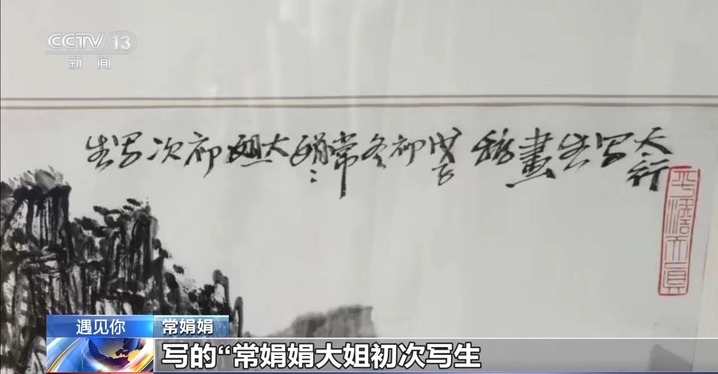 CCTV 13
新闻
太行写生畫稿 初冬常娟〻大姐初次写生
平澹天真
遇见你
常娟娟
写的“常娟娟大姐初次写生